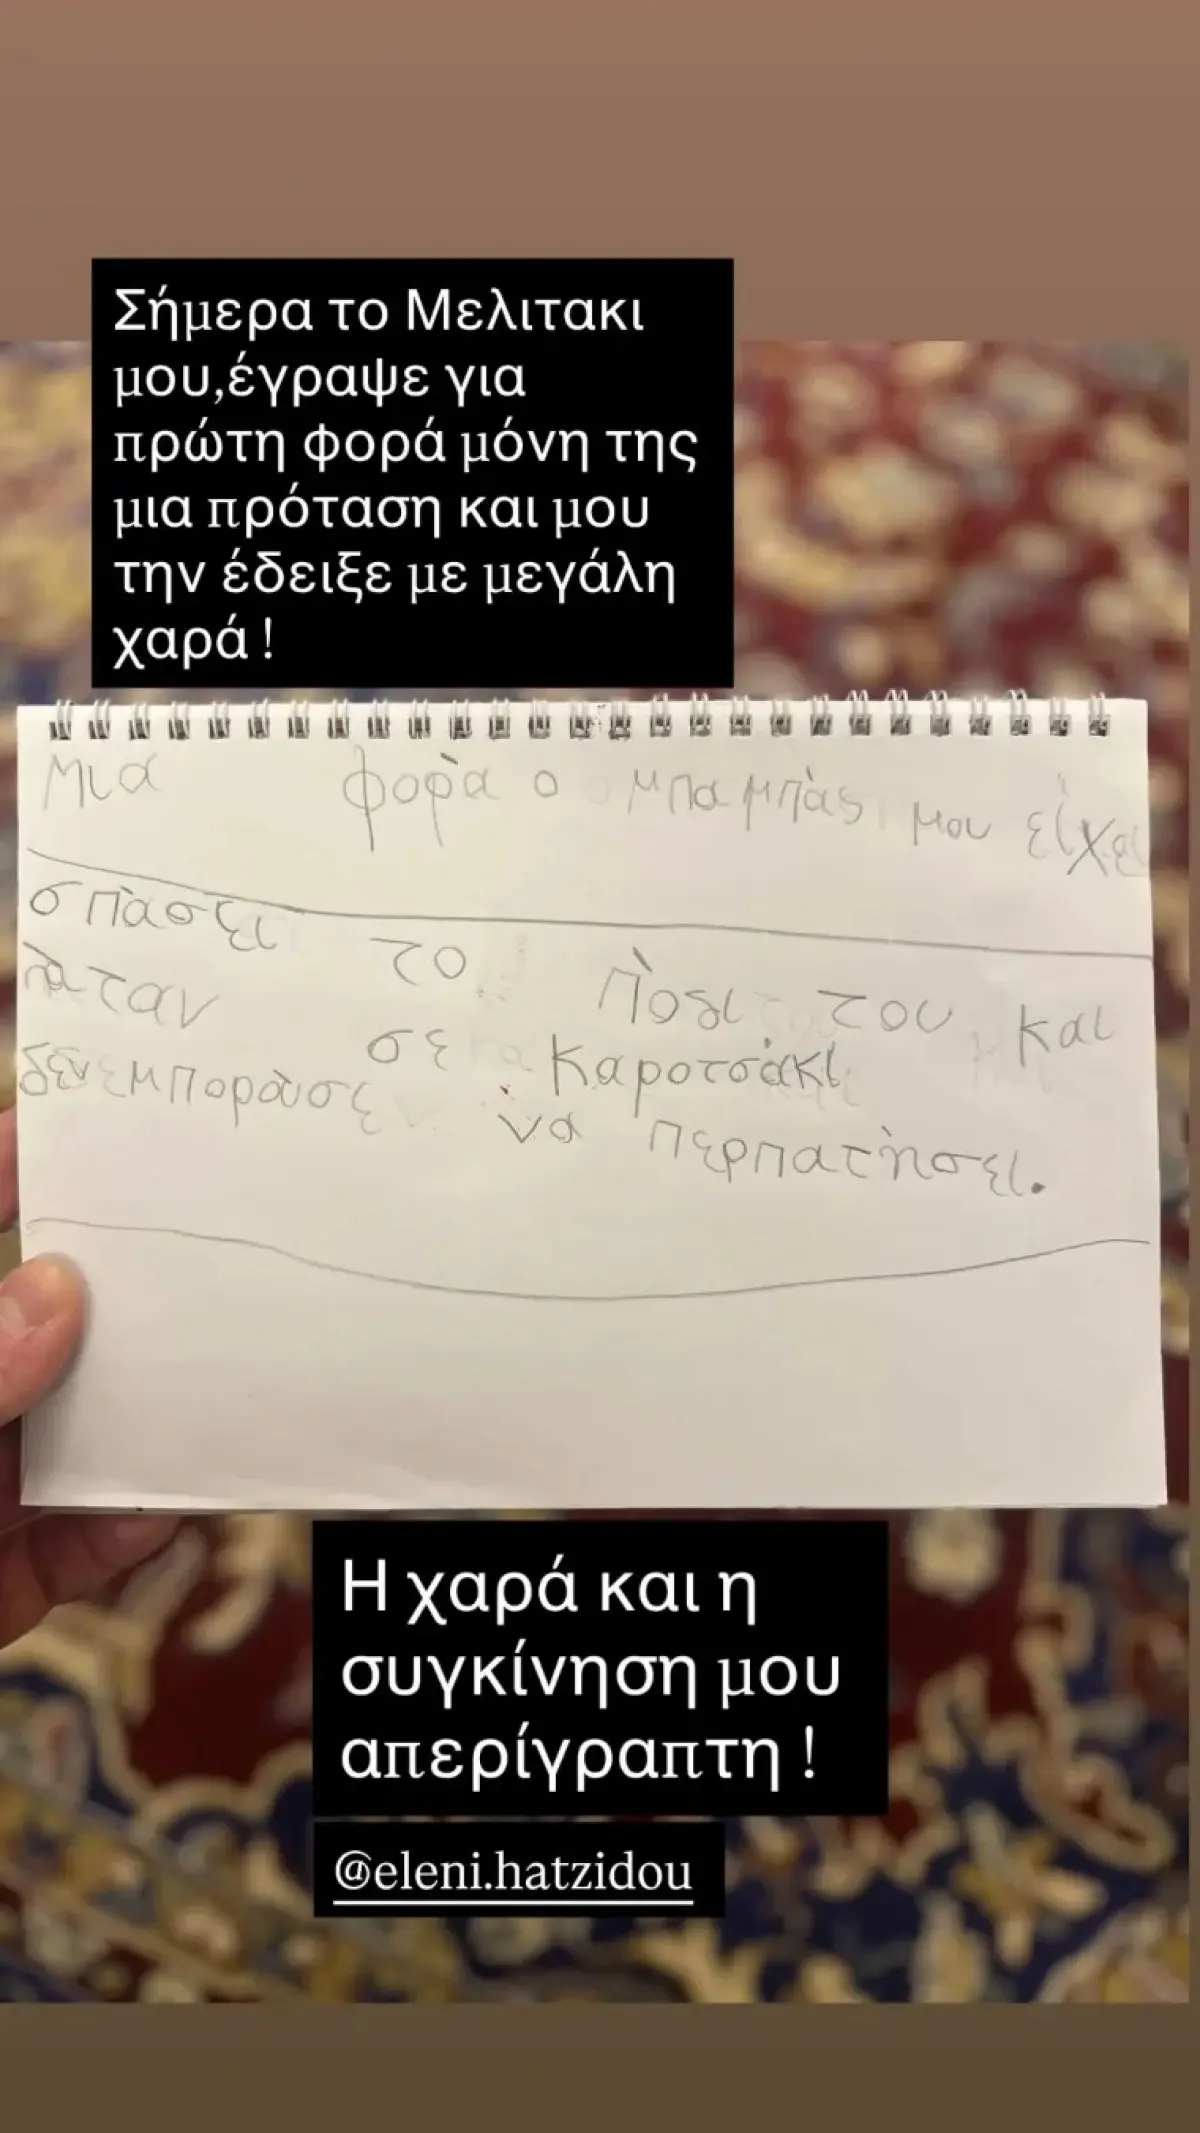 Σήμερα το Μελιτακι
μου,έγραψε για
πρώτη φορά μόνη της
μια πρόταση και μου
την έδειξε με μεγάλη
χαρά !
μια φορὰ ο μπαμπὰς μου εἰχε
σπὰσει το πὸδι του και
ὴταν σε καροτσὰκι
δεν μποροὺσε να περπατὴσει.
Η χαρά και η
συγκίνηση μου
απερίγραπτη !
@eleni.hatzidou